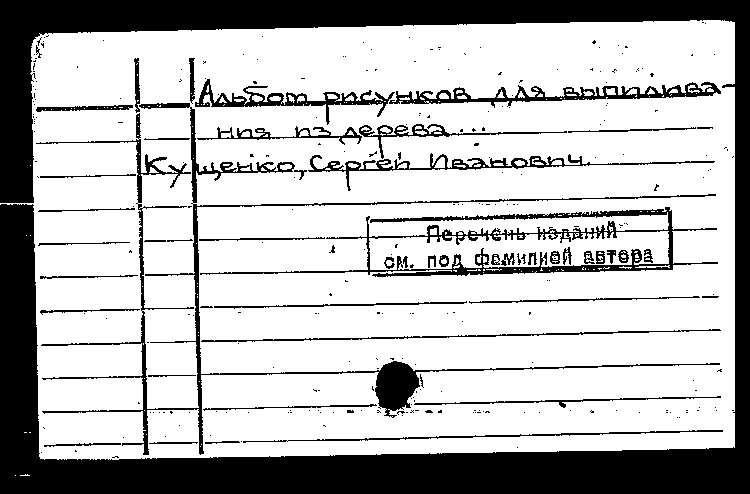 Альбом рисунков для выпилива-
ния из дерева...
Кущенко, Сергей Иванович.
Перечень изданий
см. под фамилией автора